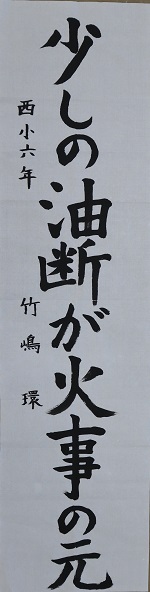 少しの油断が火事の元
西小六年 竹嶋 環